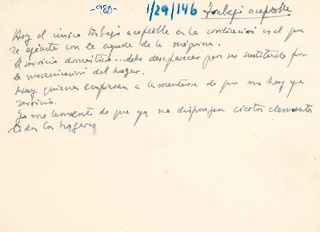 -980-
1/29/146 Trabajo aceptable
Hoy el único trabajo aceptable en la civilización es el que
se ejecute con la ayuda de la máquina.
El servicio doméstico... debe desaparecer para ser sustituido por
la mecanización del hogar.
Hay quienes empiezan a lamentarse de que no hay ya
servicio.
Yo me lamento de que ya no dispongan ciertos elementos
todos los hogares